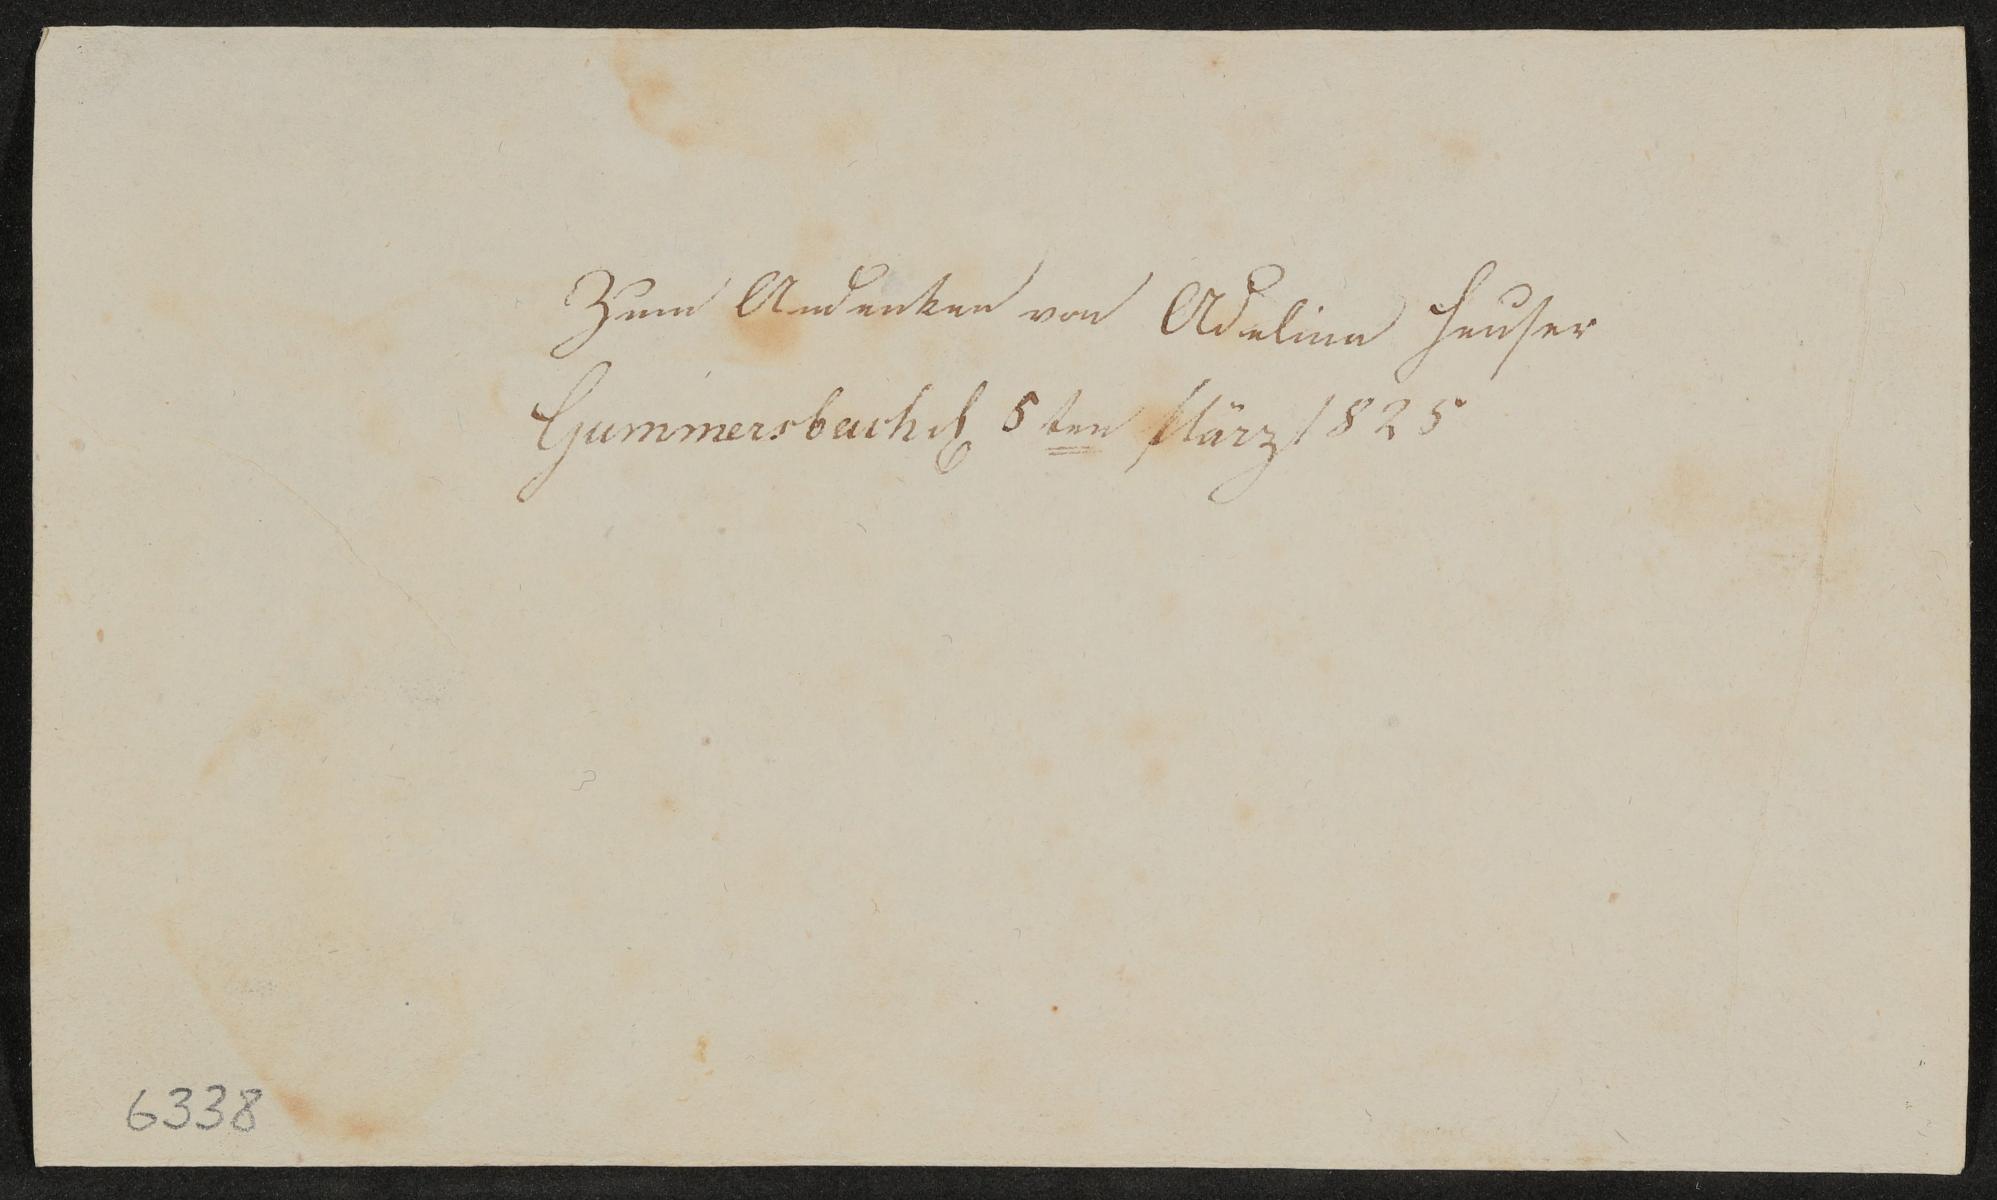 Zum Andenken von Adeline Heuser
Gummersbach d. 5ten März 1825
6338